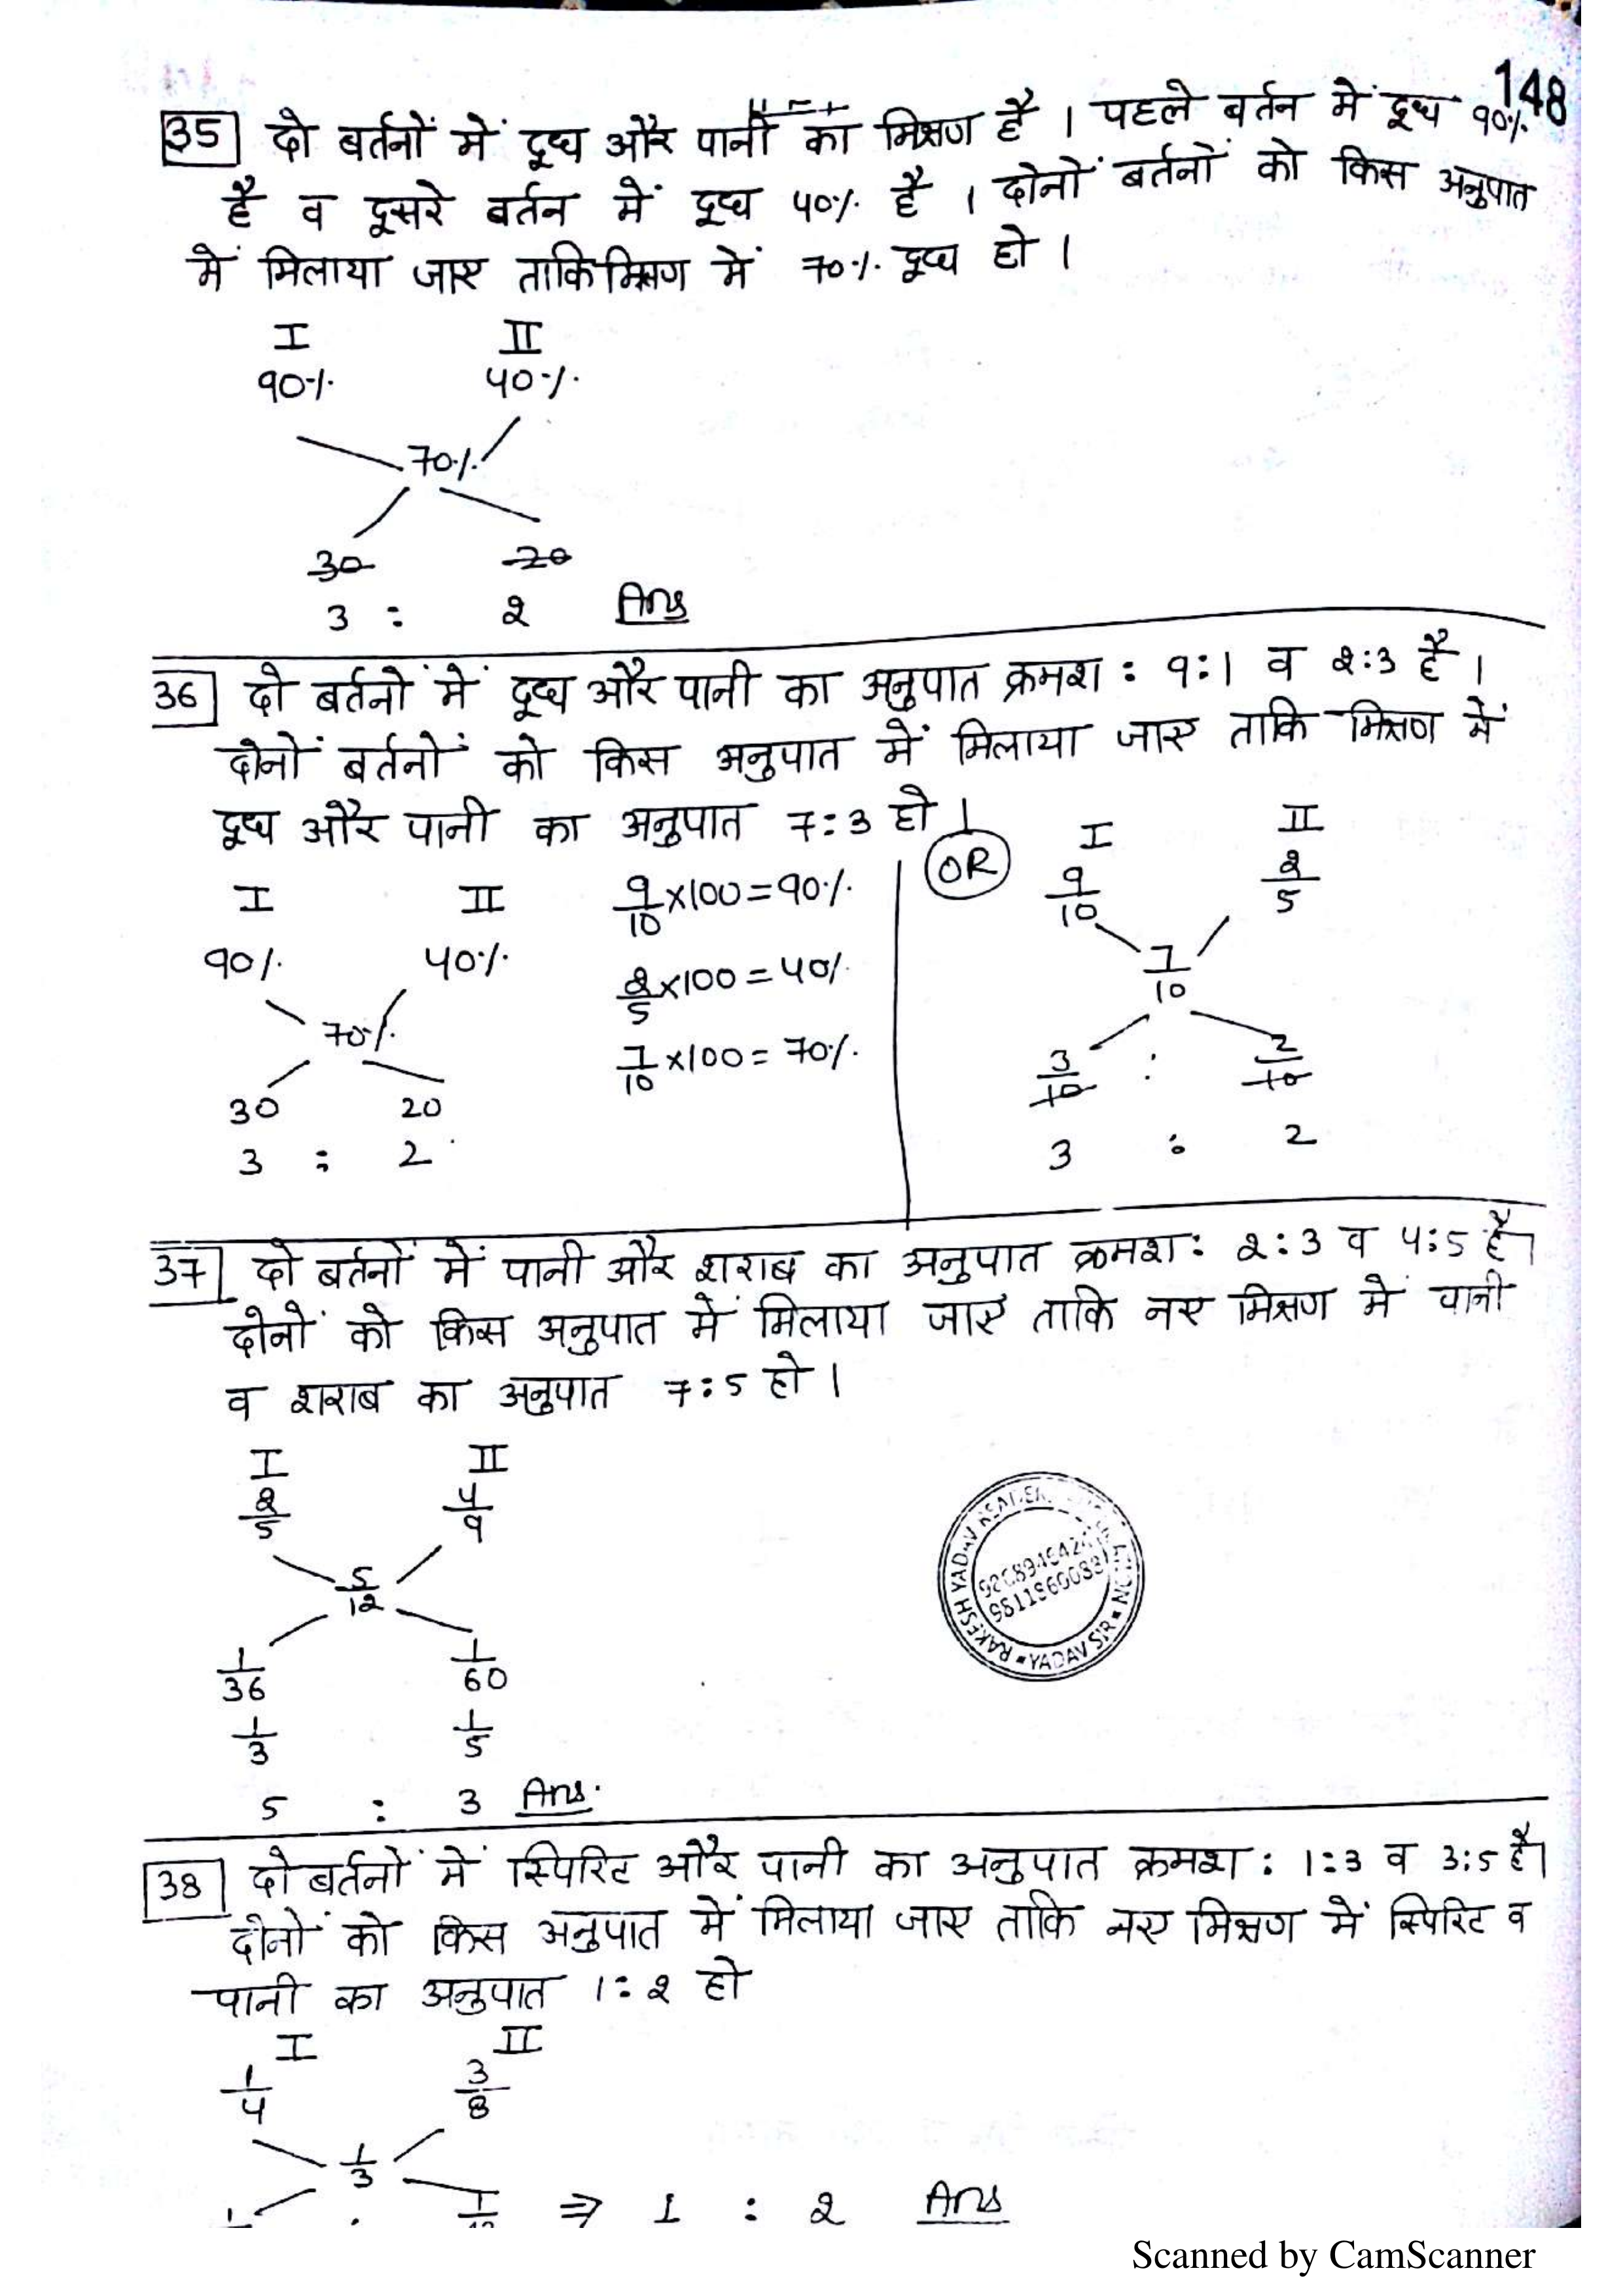 148
35 दो बर्तनों में दूध और पानी का मिश्रण है । पहले बर्तन में दूध 90%
है व दूसरे बर्तन में दूध 40% है । दोनों बर्तनों को किस अनुपात
में मिलाया जाए ताकि मिश्रण में 70% दूध हो ।
I II
90% 40%
70%
30 20
3 : 2 Ans
36 दो बर्तनों में दूध और पानी का अनुपात क्रमश: 9:1 व 2:3 है ।
दोनों बर्तनों को किस अनुपात में मिलाया जाए ताकि मिश्रण में
दूध और पानी का अनुपात 7:3 हो ।
I II
90% 40%
70%
30 20
3 : 2
9/10 ×100 = 90%
2/5 ×100 = 40%
7/10 ×100 = 70%
OR
I II
9/10 2/5
7/10
3/10 : 2/10
3 : 2
37 दो बर्तनों में पानी और शराब का अनुपात क्रमश: 2:3 व 4:5 है।
दोनों को किस अनुपात में मिलाया जाए ताकि नए मिश्रण में पानी
व शराब का अनुपात 7:5 हो ।
I II
2/5 4/9
5/12
1/36 1/60
1/3 1/5
5 : 3 Ans.
RAKESH YADAV READERS
YADAV SIR
38 दो बर्तनों में स्पिरिट और पानी का अनुपात क्रमश: 1:3 व 3:5 है।
दोनों को किस अनुपात में मिलाया जाए ताकि नए मिश्रण में स्पिरिट व
पानी का अनुपात 1:2 हो
I II
1/4 3/8
1/3
⇒ 1 : 2 Ans
Scanned by CamScanner